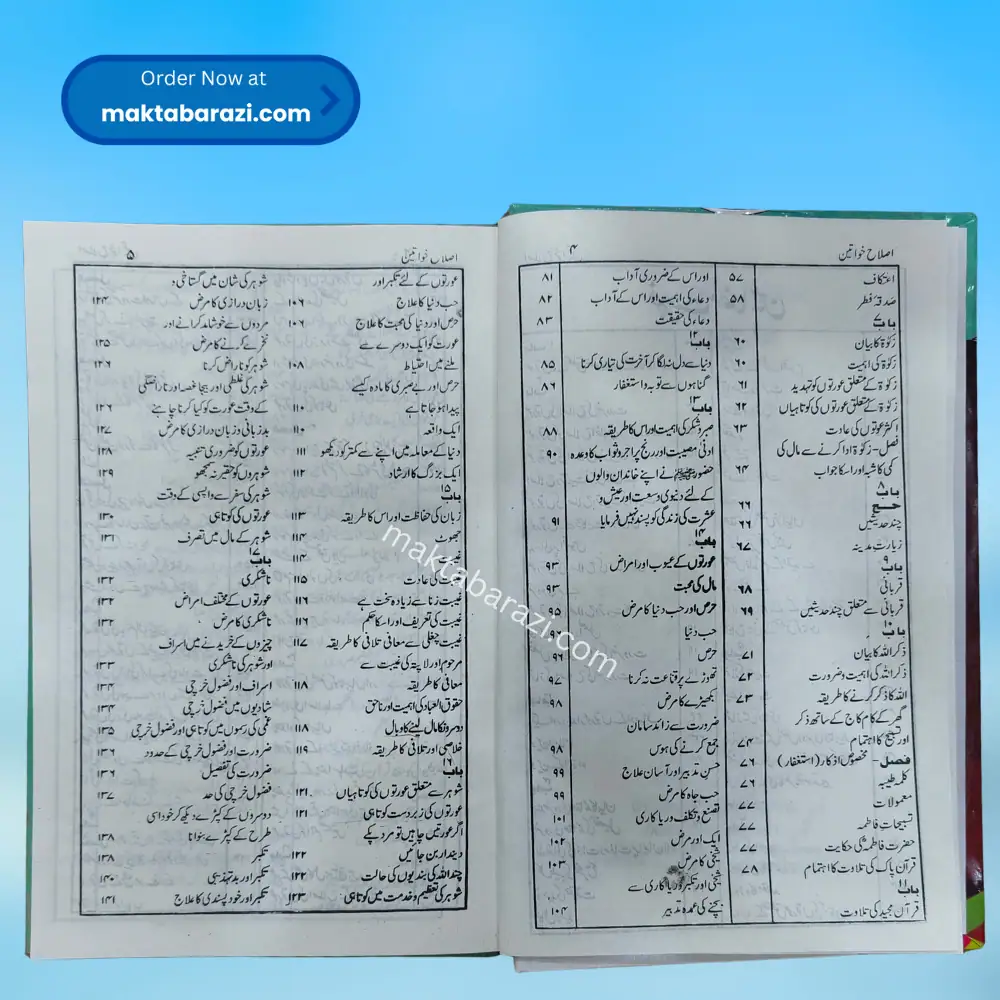 Order Now at
maktabarazi.com
اصلاح خواتین
۴
اعتکاف ۵۷
صدقۂ فطر ۵۸
باب ۷
زکوٰۃ کا بیان ۶۰
زکوٰۃ کی اہمیت ۶۰
زکوٰۃ کے متعلق عورتوں کو تہدید ۶۱
زکوٰۃ کے متعلق عورتوں کی کوتاہیاں ۶۲
اکثر عورتوں کی عادت ۶۳
فصل۔ زکوٰۃ ادا کرنے سے مال کی
کمی کا شبہ اور اسکا جواب ۶۴
باب ۸
حج ۶۶
چند حدیثیں ۶۶
زیارت مدینہ ۶۷
باب ۹
قربانی ۶۸
قربانی سے متعلق چند حدیثیں ۶۹
باب ۱۰
ذکر اللہ کا بیان ۷۱
ذکر اللہ کی اہمیت و ضرورت ۷۲
اللہ کا ذکر کرنے کا طریقہ ۷۳
گھر کے کام کاج کے ساتھ ذکر
اور تسبیح کا اہتمام ۷۴
فصل۔ مخصوص اذکار (استغفار) ۷۶
کلمہ طیبہ ۷۶
معمولات
تسبیحات فاطمہ ۷۷
حضرت فاطمہؓ کی حکایت ۷۷
قرآن پاک کی تلاوت کا اہتمام ۷۸
باب ۱۱
قرآن مجید کی تلاوت
اور اس کے ضروری آداب ۸۱
دعاء کی اہمیت اور اس کے آداب ۸۲
دعاء کی حقیقت ۸۳
باب ۱۲
دنیا سے دل نہ لگا کر آخرت کی تیاری کرنا ۸۵
گناہوں سے توبہ و استغفار ۸۶
باب ۱۳
صبر و شکر کی اہمیت اور اس کا طریقہ ۸۸
ادنیٰ مصیبت اور رنج پر اجر و ثواب کا وعدہ ۹۰
حضور ﷺ نے اپنے خاندان والوں
کے لئے دنیوی وسعت اور عیش و
عشرت کی زندگی کو پسند نہیں فرمایا ۹۱
باب ۱۴
عورتوں کے عیوب اور امراض ۹۳
مال کی محبت ۹۳
حرص اور حب دنیا کا مرض ۹۵
حب دنیا
حرص ۹۶
تھوڑے پر قناعت نہ کرنا ۹۷
بکھیڑے کا مرض ۹۸
ضرورت سے زائد سامان
جمع کرنے کی ہوس ۹۸
حسن تدبیر اور آسان علاج ۹۹
حب جاہ کا مرض ۹۹
تصنع و تکلف و ریا کاری ۱۰۱
ایک اور مرض ۱۰۲
شیخی کا مرض ۱۰۳
شیخی اور تکبر و ریا کاری سے
بچنے کی عمدہ تدبیر ۱۰۴
اصلاح خواتین
۵
عورتوں کے لئے تکبر اور
حب دنیا کا علاج ۱۰۶
حرص اور دنیا کی محبت کا علاج ۱۰۶
عورت کو ایک دوسرے سے
ملنے میں احتیاط ۱۰۸
حرص اور بے صبری کا مادہ کیسے
پیدا ہو جاتا ہے ۱۱۰
ایک واقعہ ۱۱۰
دنیا کے معاملہ میں اپنے سے کمتر کو دیکھو ۱۱۱
ایک بزرگ کا ارشاد ۱۱۲
باب ۱۵
زبان کی حفاظت اور اس کا طریقہ ۱۱۳
جھوٹ ۱۱۴
غیبت ۱۱۴
کی عادت ۱۱۵
غیبت زنا سے زیادہ سخت ہے ۱۱۶
غیبت کی تعریف اور اسکا حکم ۱۱۶
غیبت چغلی سے معافی تلافی کا طریقہ ۱۱۷
مرحوم اور لاپتہ کی غیبت سے
معافی کا طریقہ ۱۱۸
حقوق العباد کی اہمیت اور ناحق
دوسرے کا مال لینے کا وبال ۱۱۸
خلاصی اور تلافی کا طریقہ ۱۱۹
باب ۱۶
شوہر سے متعلق عورتوں کی کوتاہیاں ۱۲۱
عورتوں کی زبردست کوتاہی ۱۲۱
اگر عورتیں چاہیں تو مرد پکے
دیندار بن جائیں ۱۲۲
چند اللہ کی بندیوں کی حالت ۱۲۲
شوہر کی تعظیم و خدمت میں کوتاہی ۱۲۳
شوہر کی شان میں گستاخی و
زبان درازی کا مرض ۱۲۴
مردوں سے خوشامد کرانے اور
نخرے کرنے کا مرض ۱۲۵
شوہر کو ناراض کرنا ۱۲۶
شوہر کی غلطی اور بیجا غصہ اور ناراضگی
کے وقت عورت کو کیا کرنا چاہئے ۱۲۶
بدزبانی و زبان درازی کا مرض ۱۲۷
عورتوں کو ضروری تنبیہ ۱۲۸
شوہروں کو حقیر نہ سمجھو ۱۲۹
شوہر کی سفر سے واپسی کے وقت
عورتوں کی کوتاہی ۱۳۰
شوہر کے مال میں تصرف ۱۳۱
باب ۱۷
ناشکری ۱۳۲
عورتوں کے مختلف امراض ۱۳۲
ناشکری کا مرض ۱۳۲
چیزوں کے خریدنے میں اسراف
اور شوہر کی ناشکری ۱۳۳
اسراف اور فضول خرچی ۱۳۴
شادیوں میں فضول خرچی ۱۳۴
غمی کی رسموں میں کوتاہی اور فضول خرچی ۱۳۵
ضرورت اور فضول خرچی کے حدود ۱۳۶
ضرورت کی تفصیل ۱۳۶
فضول خرچی کی حد ۱۳۷
دوسروں کے کپڑے دیکھ کر خود اسی
طرح کے کپڑے بنوانا ۱۳۸
تکبر ۱۳۸
تکبر اور بدتہذیبی ۱۴۰
تکبر اور خود پسندی کا علاج ۱۴۱
maktabarazi.com